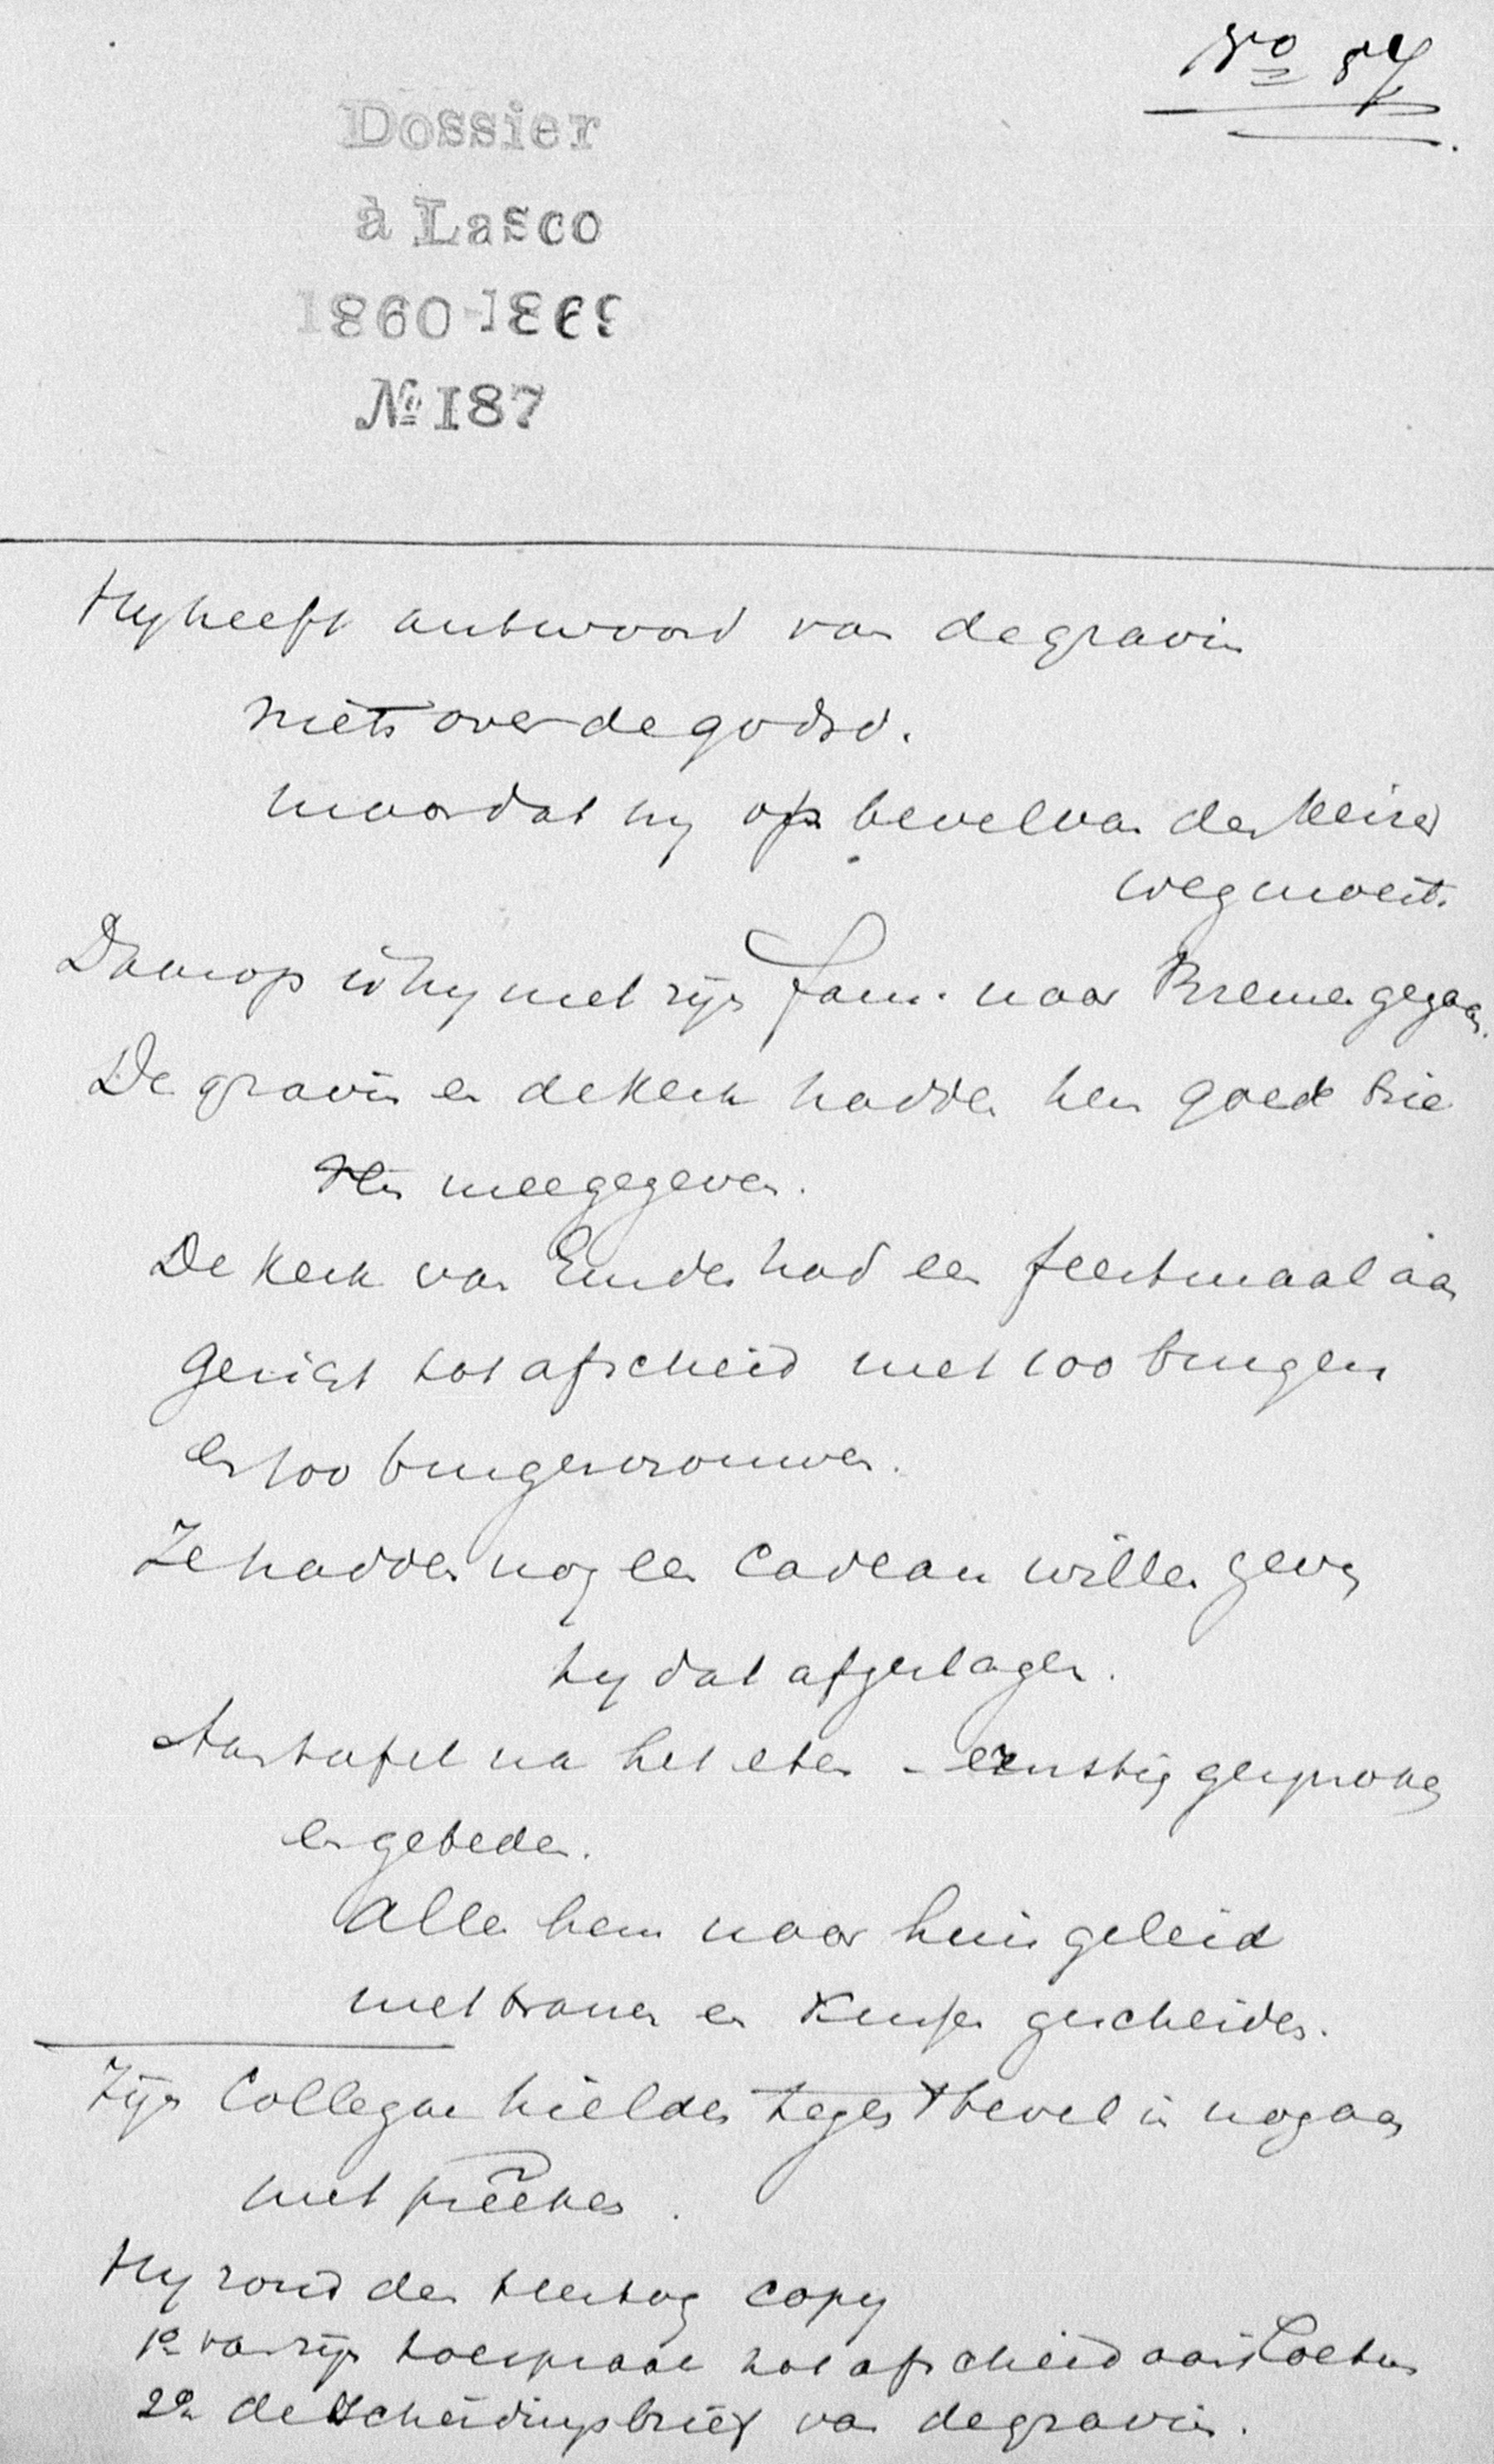 No 87.
Dossier
à Lasco
1860-1869
No 187
Hy heeft antwoord van de gravin
niets over de godsd.
maar dat hy op bevel van den Keizer
weg moest.
Daarop is hy met zijn fam. naar Bremen gegaan.
De gravin en de Kerk hadden hem goede brie
ven meegegeven.
De Kerk van Emden had een feestmaal aan
gericht tot afscheid met 100 burgers
en 100 burgervrouwen.
Ze hadden nog een Cadeau willen geven
hy dat afgeslagen.
Aan tafel na het eten - ernstig gesproken
en gebeden.
Allen hem naar huis geleid
met tranen en Kussen gescheiden.
Zijn Collegae hielden tegen 't bevel in nog aan
met preeken.
Hy zond den Hertog copy
1o van zijn toespraak tot afscheid aan 't Coetus
2o de scheidingsbrief van de gravin.